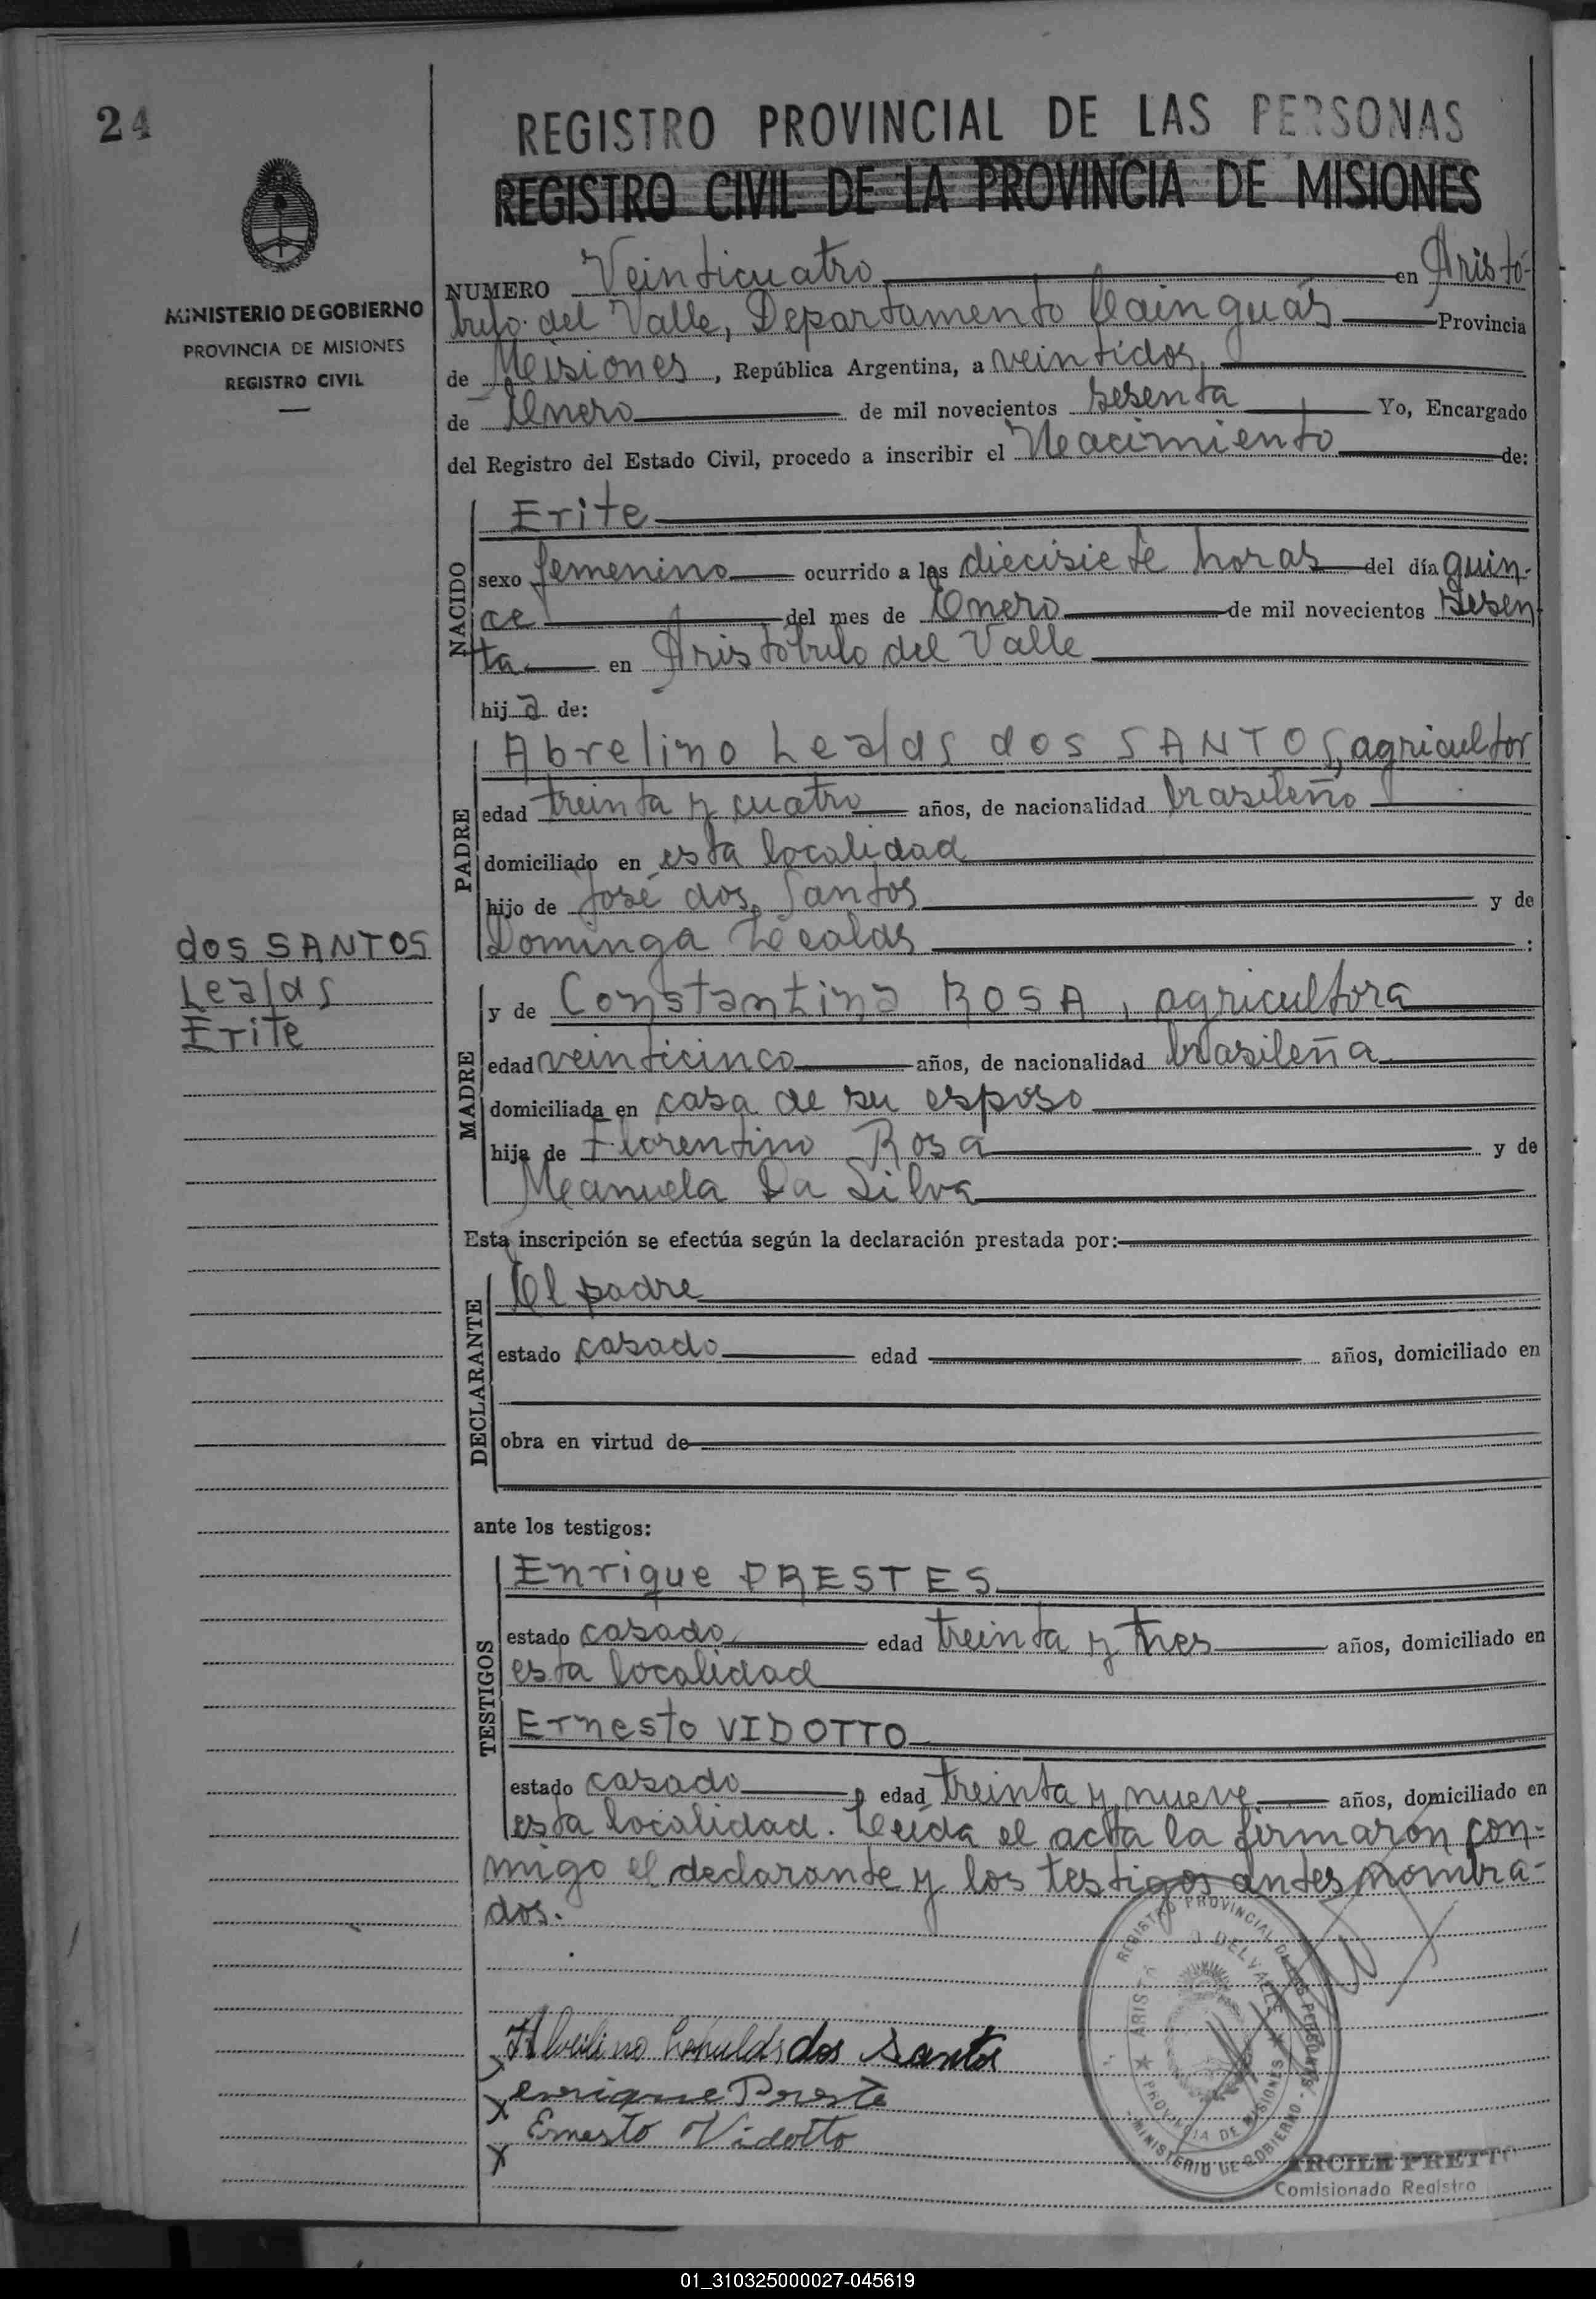 24
REGISTRO PROVINCIAL DE LAS PERSONAS
REGISTRO CIVIL DE LA PROVINCIA DE MISIONES
MINISTERIO DE GOBIERNO
PROVINCIA DE MISIONES
REGISTRO CIVIL
NUMERO Veinticuatro en Aristó-
bulo del Valle, Departamento Cainguás Provincia
de Misiones, República Argentina, a veintidos
de Enero de mil novecientos sesenta Yo, Encargado
del Registro del Estado Civil, procedo a inscribir el Nacimiento de:
NACIDO
Erite
sexo femenino ocurrido a las diecisiete horas del día quin-
ce del mes de Enero de mil novecientos sesen
ta en Aristóbulo del Valle
hija de:
PADRE
Abrelino Lealds dos SANTOS, agricultor
edad treinta y cuatro años, de nacionalidad brasileño
domiciliado en esta localidad
hijo de José dos Santos y de
Dominga Lealds :
dos SANTOS
Lealds
Erite
MADRE
y de Constantina ROSA, agricultora
edad veinticinco años, de nacionalidad brasileña
domiciliada en casa de su esposo
hija de Florentino Rosa y de
Manuela Da Silva
Esta inscripción se efectúa según la declaración prestada por:
DECLARANTE
El padre
estado casado edad años, domiciliado en
obra en virtud de
ante los testigos:
TESTIGOS
Enrique PRESTES
estado casado edad treinta y tres años, domiciliado en
esta localidad
Ernesto VIDOTTO
estado casado edad treinta y nueve años, domiciliado en
esta localidad. Leída el acta la firmaron con-
migo el declarante y los testigos antes nombra-
dos.
REGISTRO PROVINCIAL DE LAS PERSONAS
DEL VALLE
PROVINCIA DE MISIONES
MINISTERIO DE GOBIERNO
dos Santos
enrique Preste
Ernesto Vidotto
ARCILE PRETTO
Comisionado Registro
01_310325000027-045619